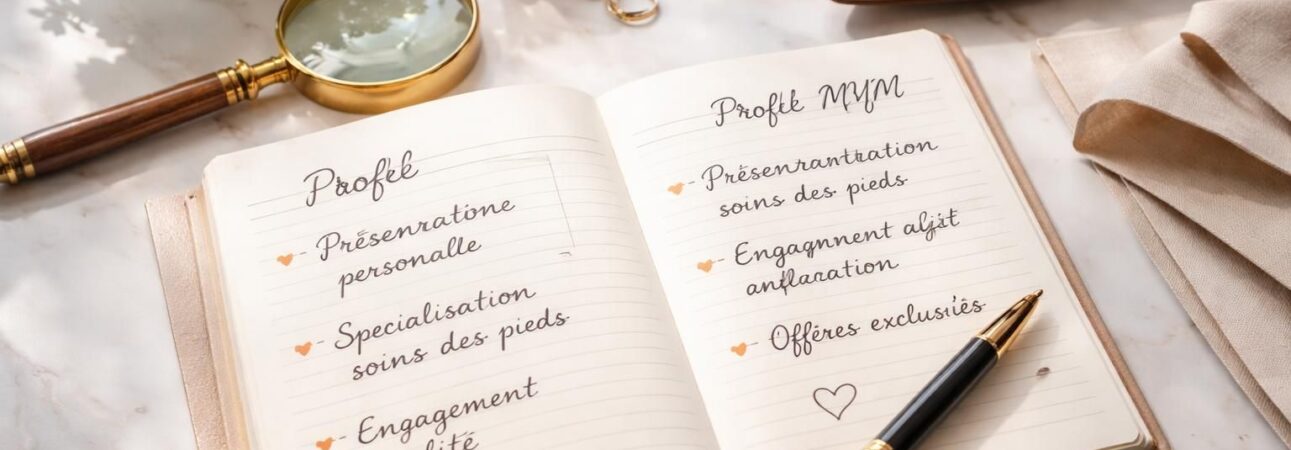 Présenratone
personalle
Specialisation
soins des pieds
Engagement
lité
MYM
Présenrantration
soins des pieds
Engagnment
anflaration
Offéres exclusiés